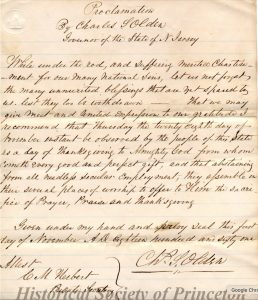 Proclamation
By Charles S Olden
Governor of the State of N Jersey
While under the rod, and suffering merited Chastise-
ment for our Many National Sins, let us not forget
the many unmerited blessings that are yet spared to
us. lest they too be withdrawn — That we may
give meet and United expression to our gratitude I
recommend that Thursday the twenty eighth day of
November instant be observed by the people of this State
as a day of thanksgiving to Almighty God from whom
cometh every good and perfect gift, and that abstaining
from all needless secular employment, they assemble in
their usual places of worship to offer to Him the sacri-
fice of Prayer, Praise and thanksgiving
Given under my hand and seal this first
day of November A.D. Eighteen hundred and sixty one
Attest
Chs S Olden
C M Herbert
Private Secretary
Historical Society of Princeton
Google Chro